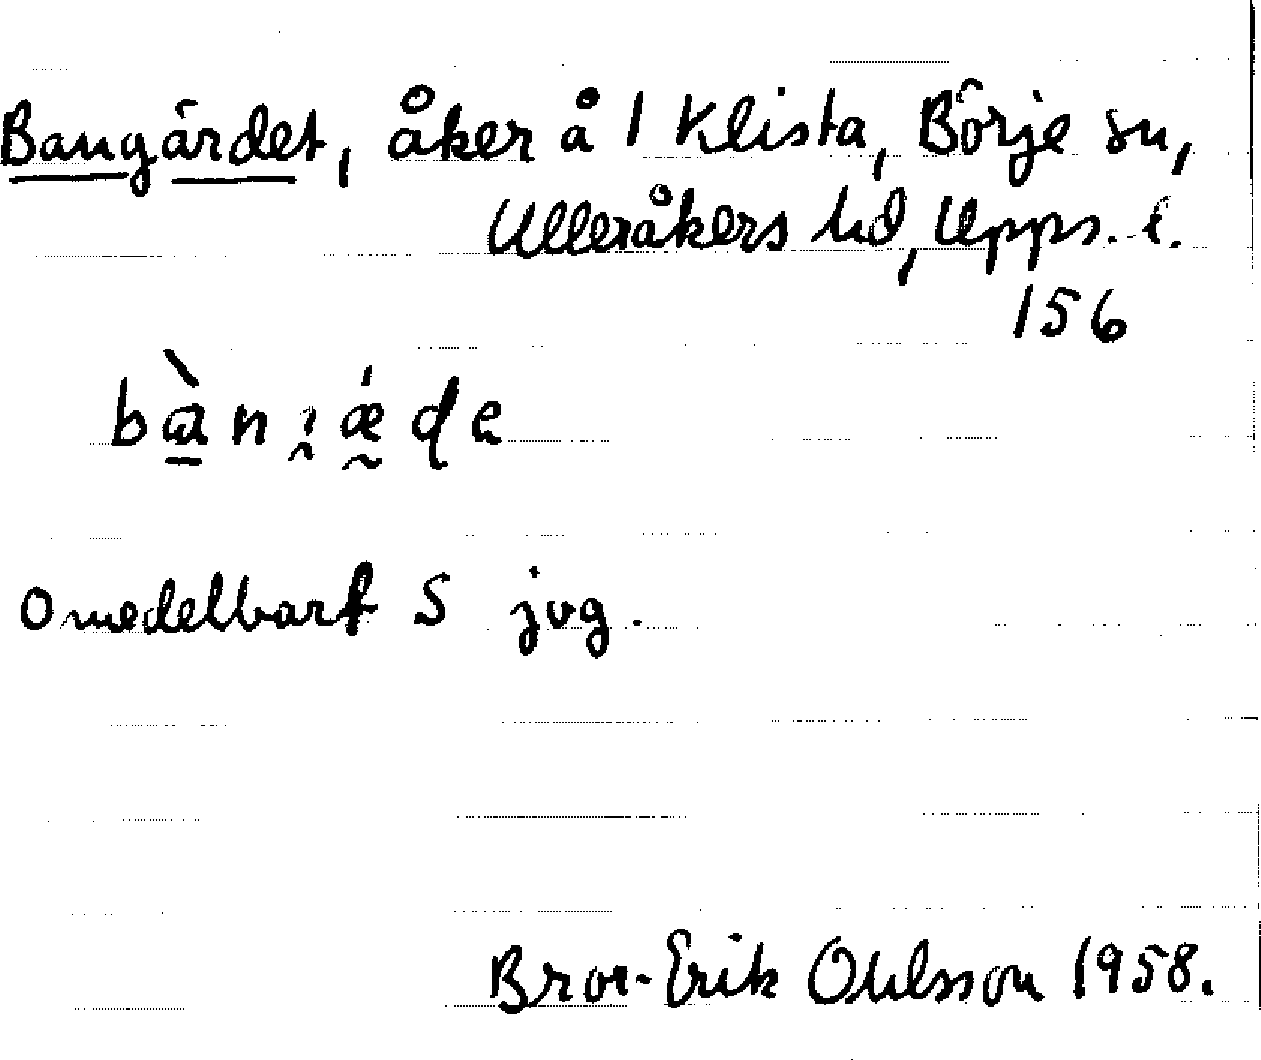 Bangärdet, åker å 1 Klista, Börje sn,
Ulleråkers hd, Upps. l.
156
omedelbart S jvg.
Bror-Erik Ohlsson 1958.